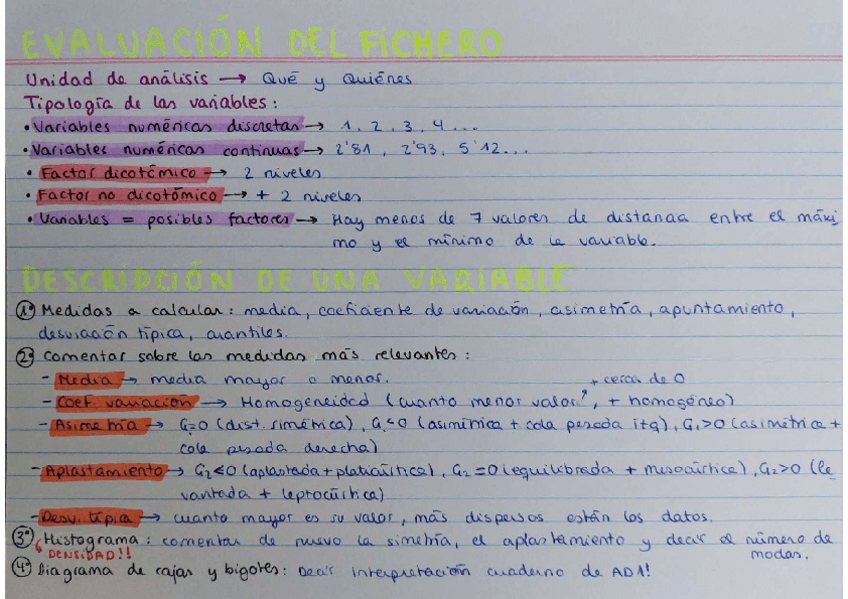 EVALUACIÓN DEL FICHERO
Unidad de análisis → Qué y Quiénes
Tipología de las variables:
• Variables numéricas discretas → 1, 2, 3, 4 ...
• Variables numéricas continuas → 2'81, 2'93, 5'12...
• Factor dicotómico → 2 niveles
• Factor no dicotómico → + 2 niveles
• Variables = posibles factores → Hay menos de 7 valores de distancia entre el máxi
mo y el mínimo de la variable.
DESCRIPCIÓN DE UNA VARIABLE
1º Medidas a calcular: media, coeficiente de variación, asimetría, apuntamiento,
desviación típica, cuantiles.
2º Comentar sobre las medidas más relevantes:
- Media → media mayor o menor.
+ cerca de 0
- Coef. variación → Homogeneidad (cuanto menor valor, + homogéneo)
- Asimetría → G1=0 (dist. simétrica), G1<0 (asimétrica + cola pesada izq), G1>0 (asimétrica +
cola pesada derecha)
- Aplastamiento → G2≤0 (aplastada + platicúrtica), G2=0 (equilibrada + mesocúrtica), G2>0 (le
vantada + leptocúrtica)
- Desv. típica → cuanto mayor es su valor, más dispersos están los datos.
3º Histograma: comentar de nuevo la simetría, el aplastamiento y decir el número de
DENSIDAD!! modas.
4º Diagrama de cajas y bigotes: Decir interpretación cuaderno de AD1!